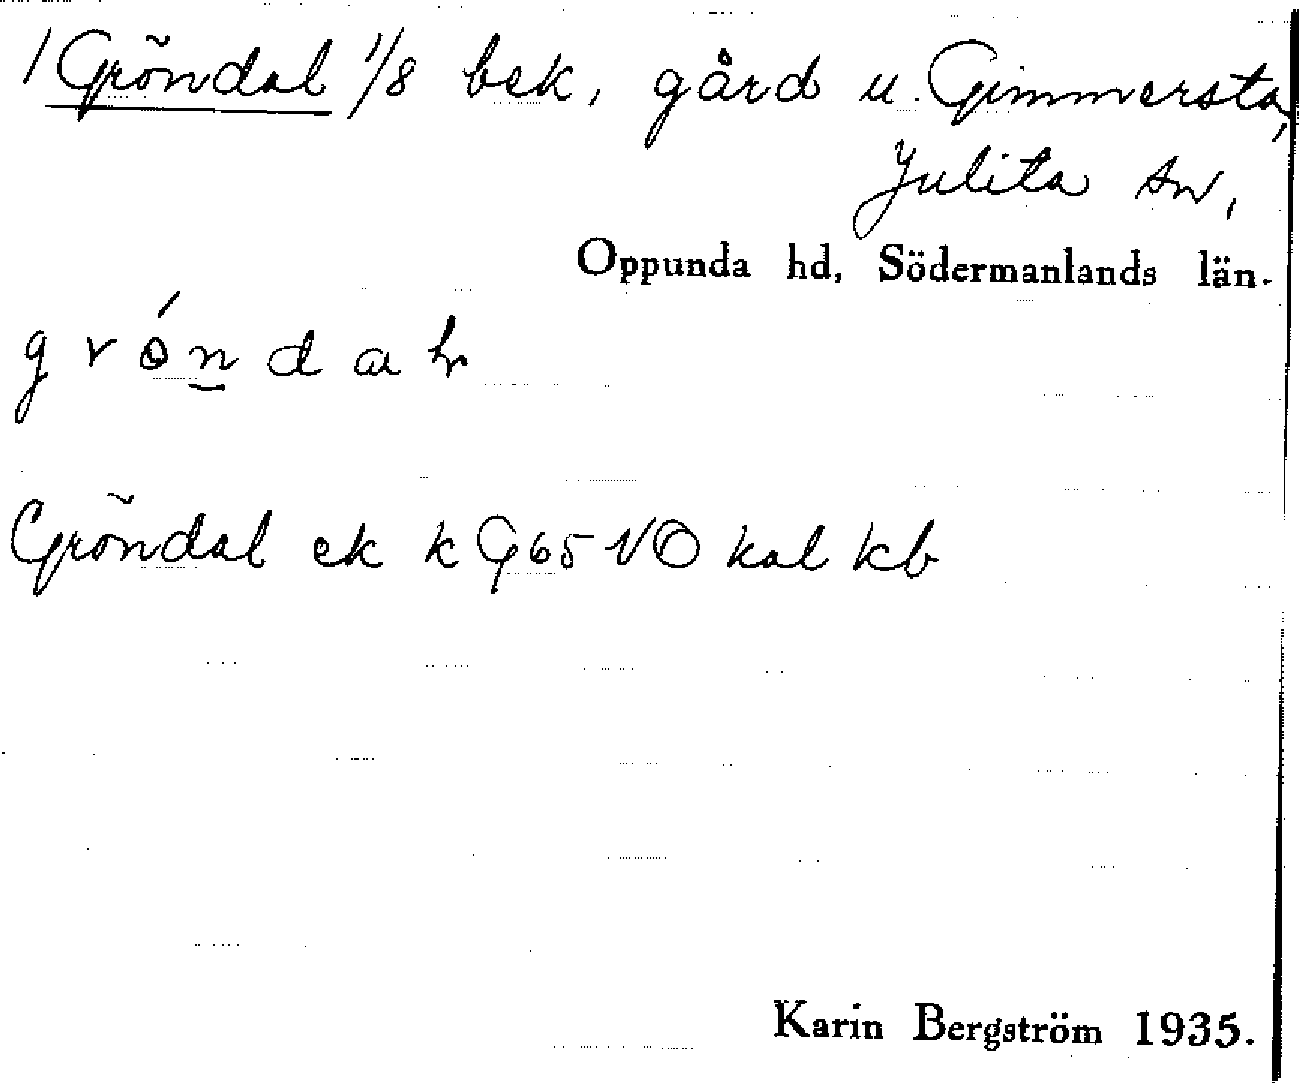 / Gröndal 1/8 bek, gård u. Gimmersta,
Julita sn,
Oppunda hd, Södermanlands län.
g r ó n d a
Gröndal ek k G65 NO kal kb
Karin Bergström 1935.